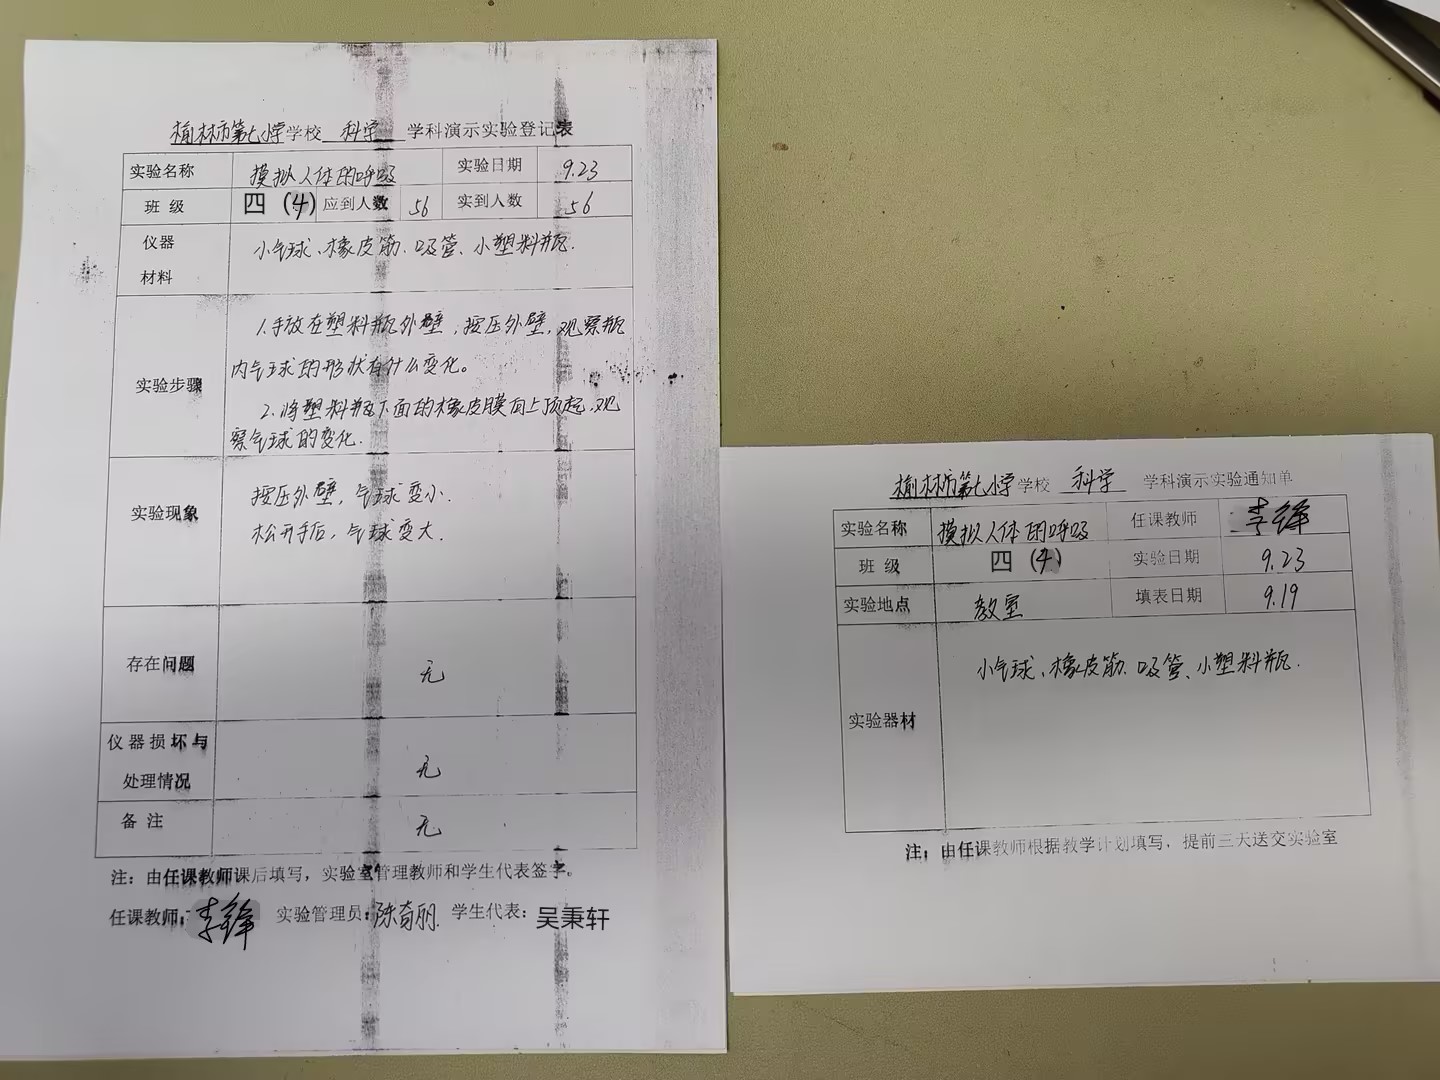 榆林市第七小学学校 科学 学科演示实验登记表
实验名称 摸拟人体的呼吸 实验日期 9.23
班 级 四 (4) 应到人数 56 实到人数 56
仪器 小气球、橡皮筋、吸管、小塑料瓶.
材料
1.手放在塑料瓶外壁,按压外壁,观察瓶
实验步骤 内气球的形状有什么变化。
2.将塑料瓶下面的橡皮膜向上顶起,观
察气球的变化.
实验现象 按压外壁,气球变小.
松开手后,气球变大.
存在问题 无
仪器损坏与
处理情况 无
备 注 无
注:由任课教师课后填写,实验室管理教师和学生代表签字。
任课教师: 李锋 实验管理员: 陈育丽 学生代表: 吴秉轩
榆林市第七小学学校 科学 学科演示实验通知单
实验名称 摸拟人体的呼吸 任课教师 李锋
班 级 四 (4) 实验日期 9.23
实验地点 教室 填表日期 9.19
实验器材 小气球、橡皮筋、吸管、小塑料瓶.
注:由任课教师根据教学计划填写,提前三天送交实验室